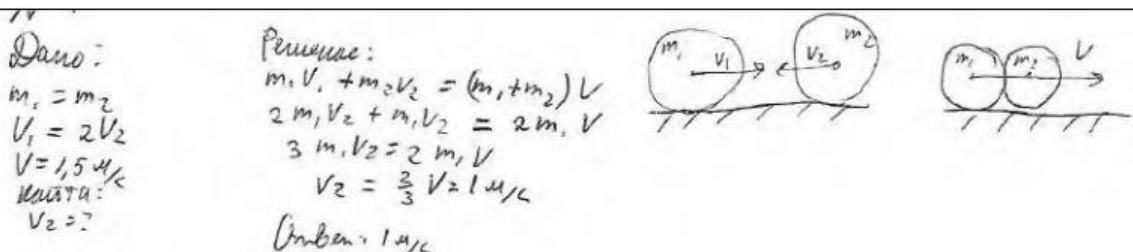 Дано:
m₁ = m₂
V₁ = 2V₂
V = 1,5 м/с
Найти:
V₂ = ?
Решение:
m₁V₁ + m₂V₂ = (m₁+m₂) V
2 m₁V₂ + m₁V₂ = 2m₁ V
3 m₁V₂ = 2 m₁ V
V₂ = 2/3 V = 1 м/с
Ответ: 1 м/с
m₁ V₁ V₂ m₂
m₁ m₂ V